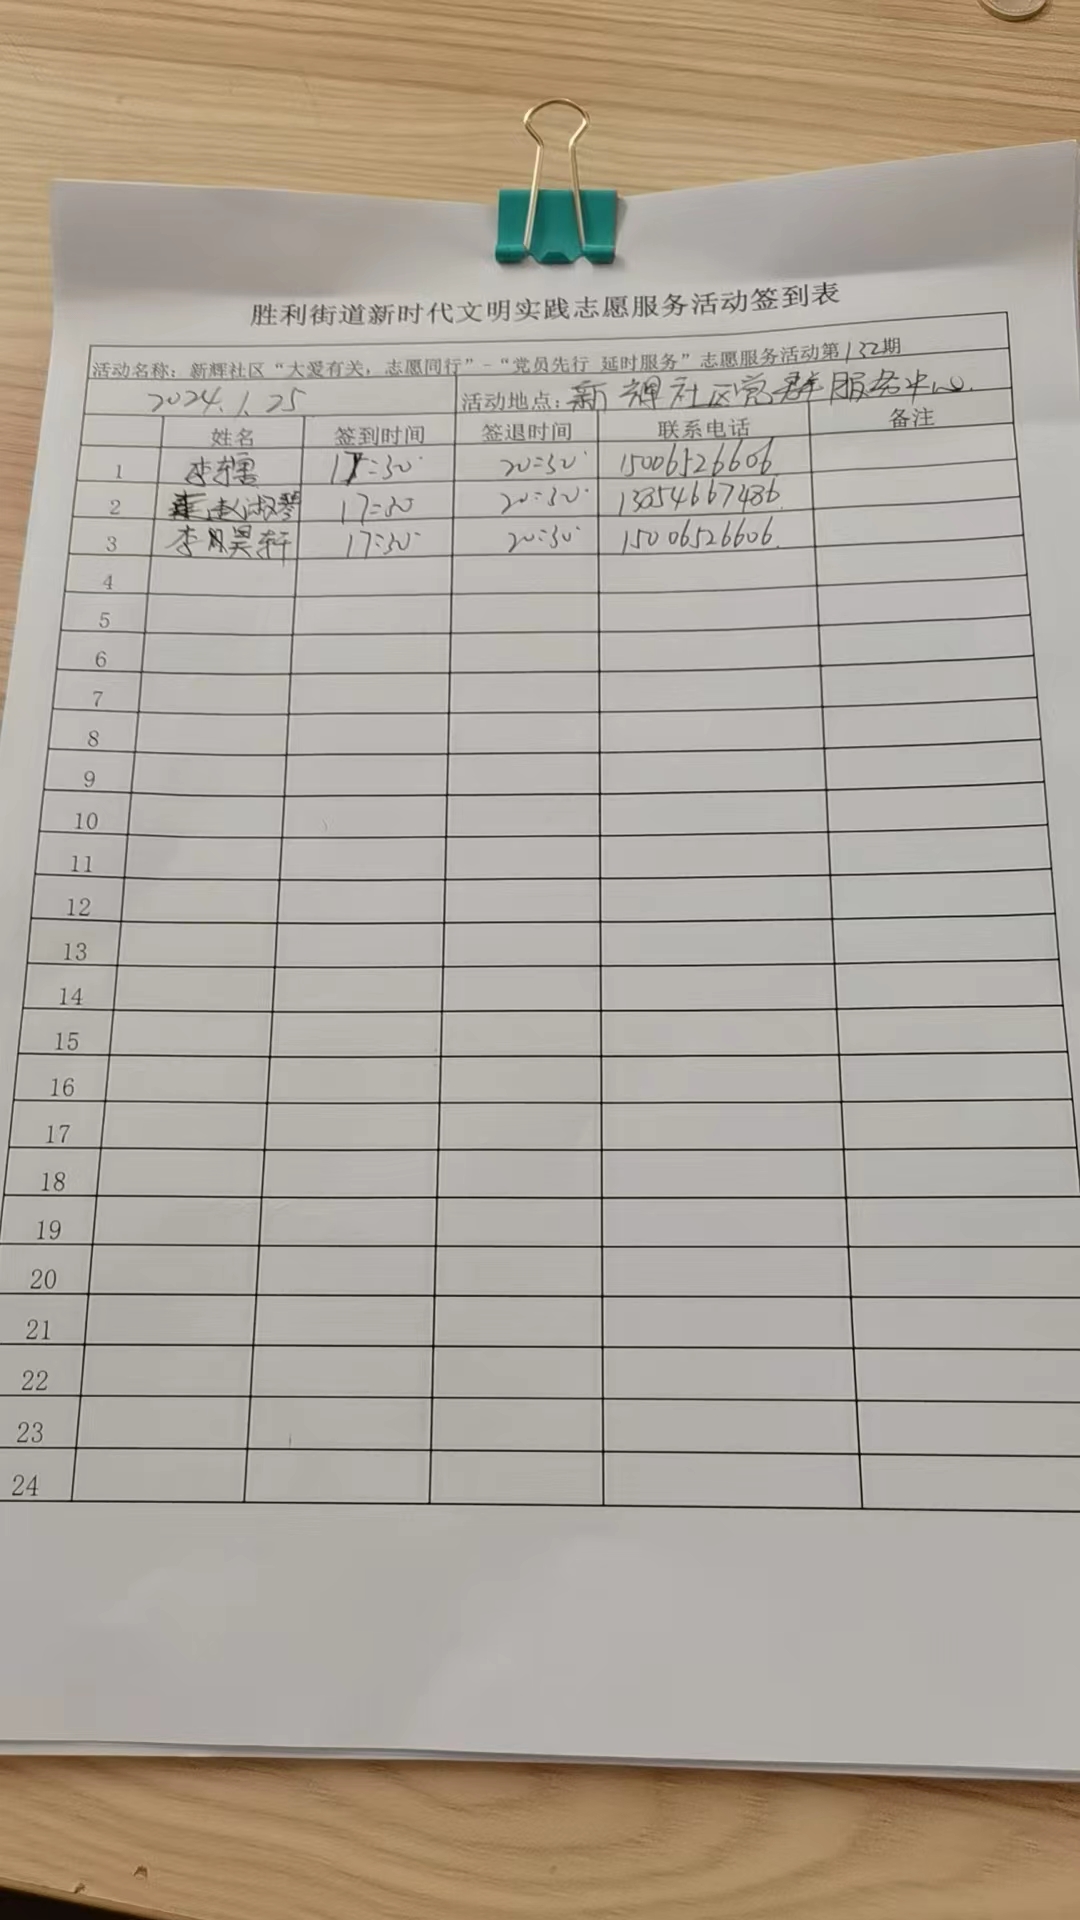 胜利街道新时代文明实践志愿服务活动签到表
活动名称：新辉社区“大爱有关，志愿同行”-“党员先行 延时服务”志愿服务活动第132期
2024.1.25 活动地点：新辉社区党群服务中心.
姓名 签到时间 签退时间 联系电话 备注
1 李 17:30 20:30 15006526606
2 赵淑琴 17:30 20:30 13854667486
3 李昊轩 17:30 20:30 15006526606
4
5
6
7
8
9
10
11
12
13
14
15
16
17
18
19
20
21
22
23
24